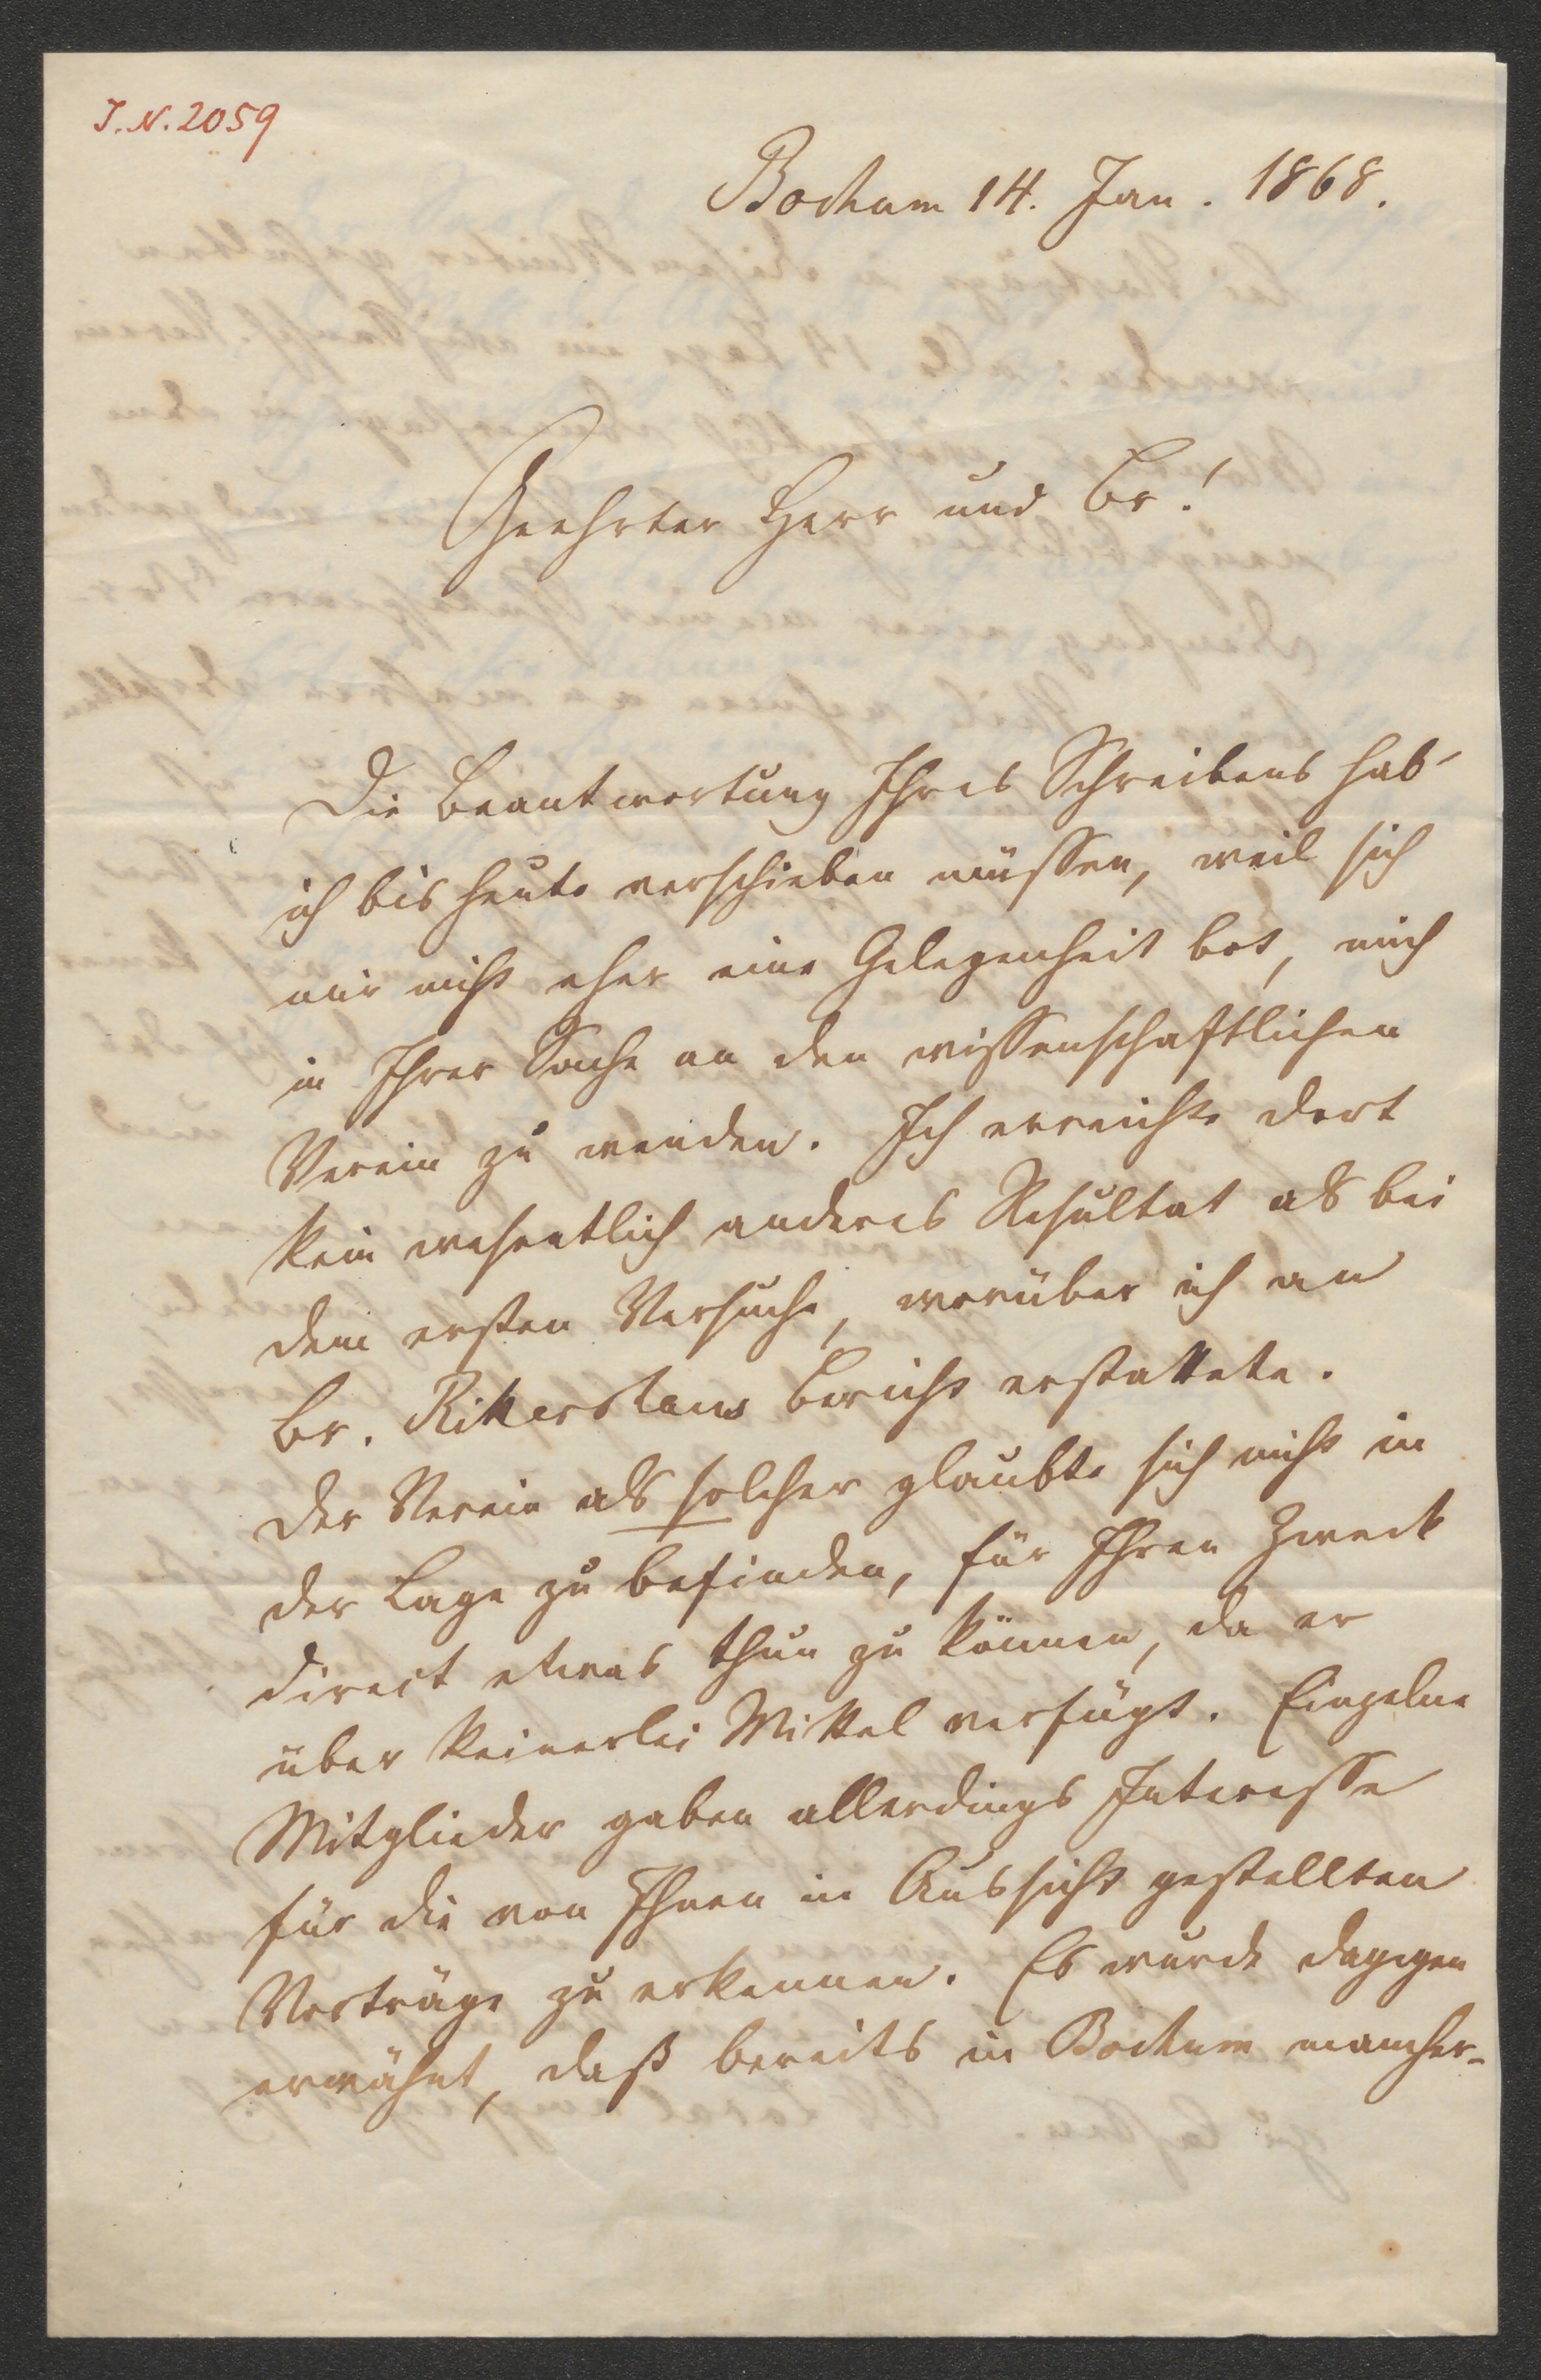 J.N. 2059
Bochum 14. Jan. 1868.
Geehrter Herr und Br.!
Die Beantwortung Ihres Schreibens hab'
ich bis heute verschieben müssen, weil sich
mir nicht eher eine Gelegenheit bot, mich
in Ihrer Sache an den wissenschaftlichen
Verein zu wenden. Ich erreichte dort
kein wesentlich anderes Resultat als bei
dem ersten Versuche, worüber ich an
Br. Rittershaus Bericht erstattete.
Der Verein als solcher glaubte sich nicht in
der Lage zu befinden, für Ihren Zweck
direct etwas thun zu können, da er
über keinerlei Mittel verfügt. Einzelne
Mitglieder gaben allerdings Interesse
für die von Ihnen in Aussicht gestellten
Vorträge zu erkennen. Es wurde dagegen
erwähnt, daß bereits in Bochum mancher-